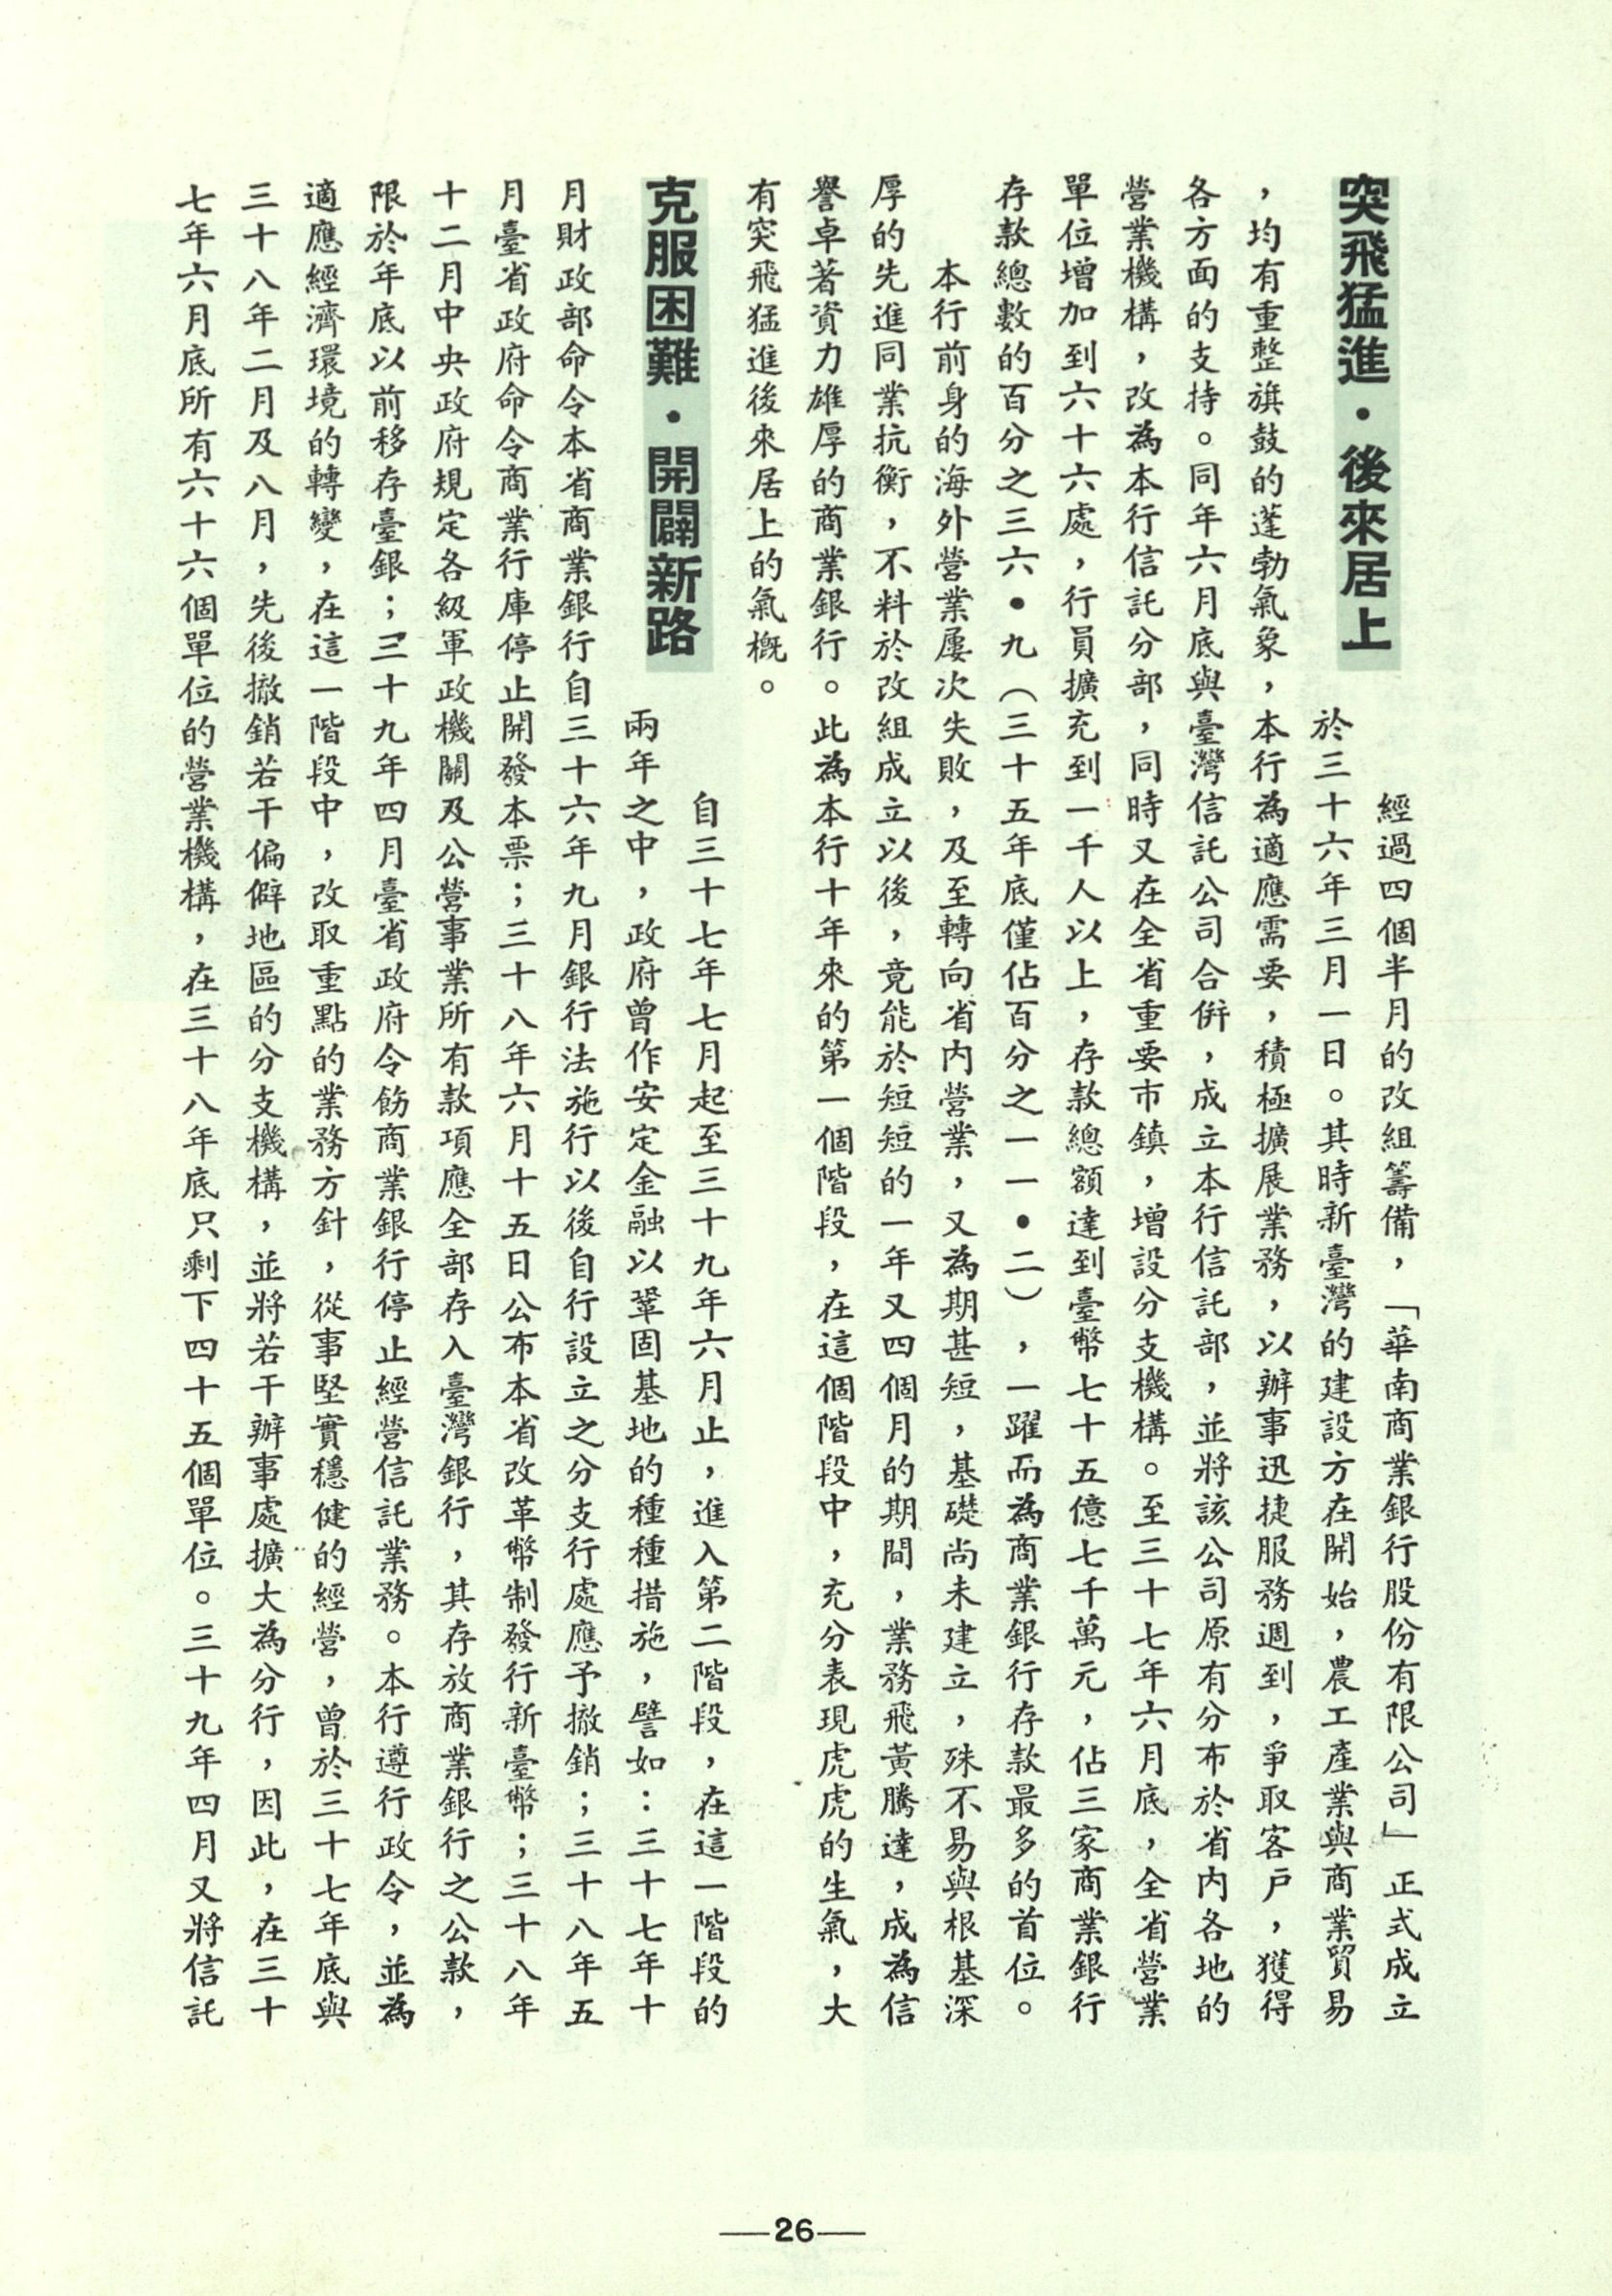 突飛猛進・後來居上
經過四個半月的改組籌備，「華南商業銀行股份有限公司」正式成立
於三十六年三月一日。其時新臺灣的建設方在開始，農工產業與商業貿易
，均有重整旗鼓的蓬勃氣象，本行為適應需要，積極擴展業務，以辦事迅捷服務週到，爭取客戶，獲得
各方面的支持。同年六月底與臺灣信託公司合倂，成立本行信託部，並將該公司原有分布於省內各地的
營業機構，改為本行信託分部，同時又在全省重要市鎮，增設分支機構。至三十七年六月底，全省營業
單位增加到六十六處，行員擴充到一千人以上，存款總額達到臺幣七十五億七千萬元，佔三家商業銀行
存款總數的百分之三六・九（三十五年底僅佔百分之一一・二），一躍而為商業銀行存款最多的首位。
本行前身的海外營業屢次失敗，及至轉向省內營業，又為期甚短，基礎尚未建立，殊不易與根基深
厚的先進同業抗衡，不料於改組成立以後，竟能於短短的一年又四個月的期間，業務飛黃騰達，成為信
譽卓著資力雄厚的商業銀行。此為本行十年來的第一個階段，在這個階段中，充分表現虎虎的生氣，大
有突飛猛進後來居上的氣概。
克服困難・開闢新路
自三十七年七月起至三十九年六月止，進入第二階段，在這一階段的
兩年之中，政府曾作安定金融以鞏固基地的種種措施，譬如：三十七年十
月財政部命令本省商業銀行自三十六年九月銀行法施行以後自行設立之分支行處應予撤銷；三十八年五
月臺省政府命令商業行庫停止開發本票；三十八年六月十五日公布本省改革幣制發行新臺幣；三十八年
十二月中央政府規定各級軍政機關及公營事業所有款項應全部存入臺灣銀行，其存放商業銀行之公款，
限於年底以前移存臺銀；三十九年四月臺省政府令飭商業銀行停止經營信託業務。本行遵行政令，並為
適應經濟環境的轉變，在這一階段中，改取重點的業務方針，從事堅實穩健的經營，曾於三十七年底與
三十八年二月及八月，先後撤銷若干偏僻地區的分支機構，並將若干辦事處擴大為分行，因此，在三十
七年六月底所有六十六個單位的營業機構，在三十八年底只剩下四十五個單位。三十九年四月又將信託
—26—